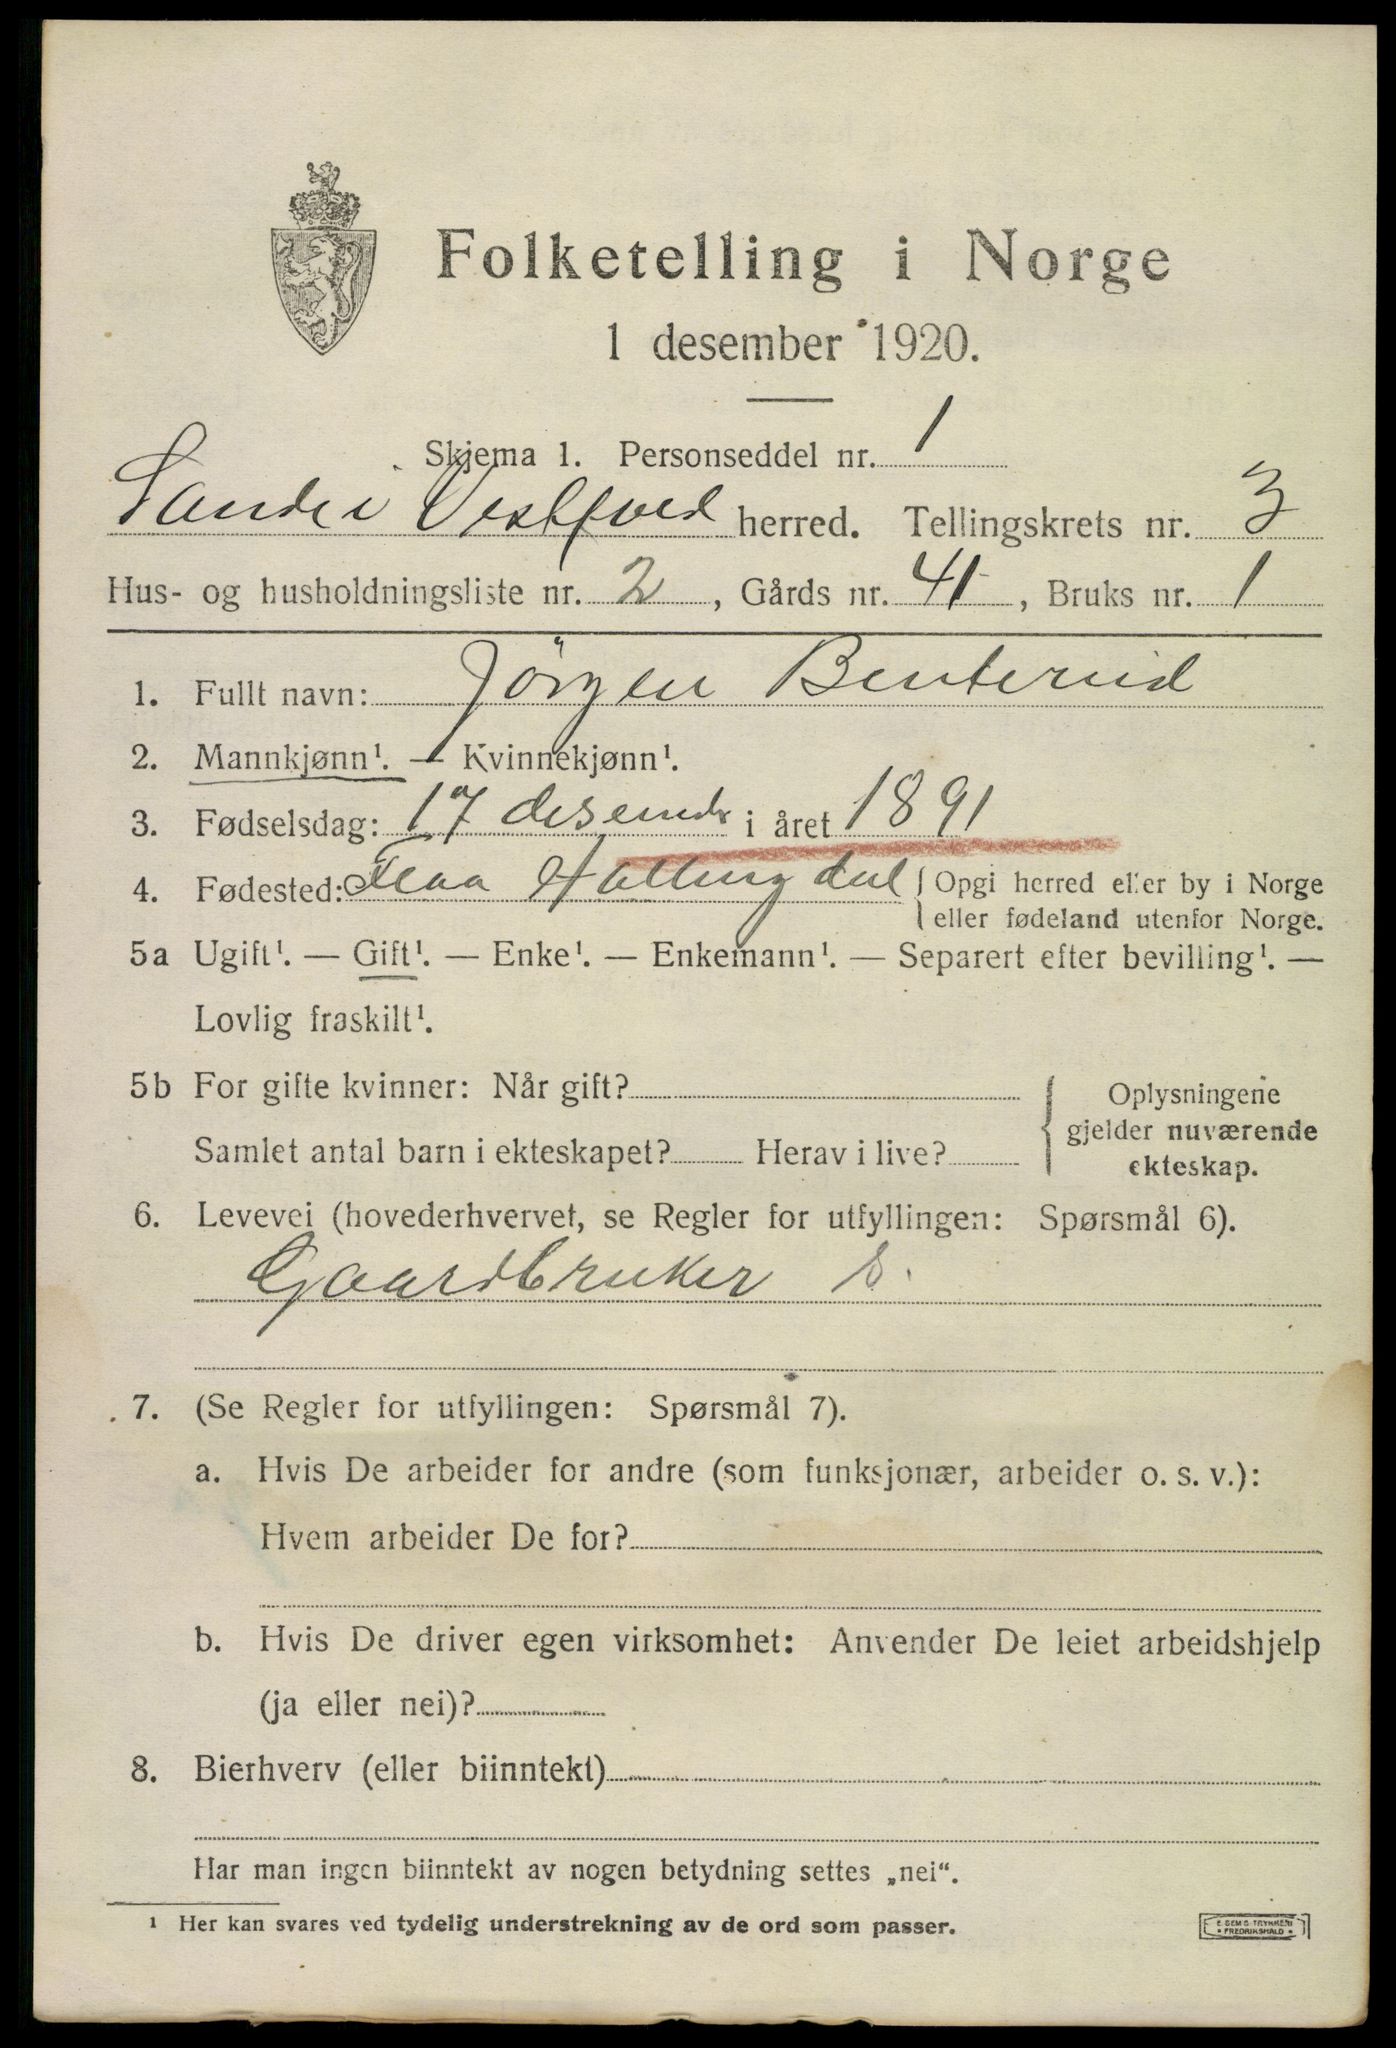 Folketelling i Norge
1 desember 1920.
Skjema 1. Personseddel nr. 1
Sande i Vestfold herred. Tellingskrets nr. 3
Hus- og husholdningsliste nr. 2, Gårds nr. 41, Bruks nr. 1
1. Fullt navn: Jörgen Benterud
2. Mannkjønn¹. — Kvinnekjønn¹.
3. Fødselsdag: 17 desember i året 1891
4. Fødested: Flaa Hallingdal { Opgi herred eller by i Norge
eller fødeland utenfor Norge.
5a Ugift¹. — Gift¹. — Enke¹. — Enkemann¹. — Separert efter bevilling¹. —
Lovlig fraskilt¹.
5b For gifte kvinner: Når gift?
Samlet antal barn i ekteskapet? Herav i live?
{ Oplysningene
gjelder nuværende
ekteskap.
6. Levevei (hovederhvervet, se Regler for utfyllingen: Spørsmål 6).
Gaardbruker S.
7. (Se Regler for utfyllingen: Spørsmål 7).
a. Hvis De arbeider for andre (som funksjonær, arbeider o. s. v.):
Hvem arbeider De for?
b. Hvis De driver egen virksomhet: Anvender De leiet arbeidshjelp
(ja eller nei)?
8. Bierhverv (eller biinntekt)
Har man ingen biinntekt av nogen betydning settes „nei“.
¹ Her kan svares ved tydelig understrekning av de ord som passer.
E. SEM'S TRYKKERI
FREDRIKSHALD